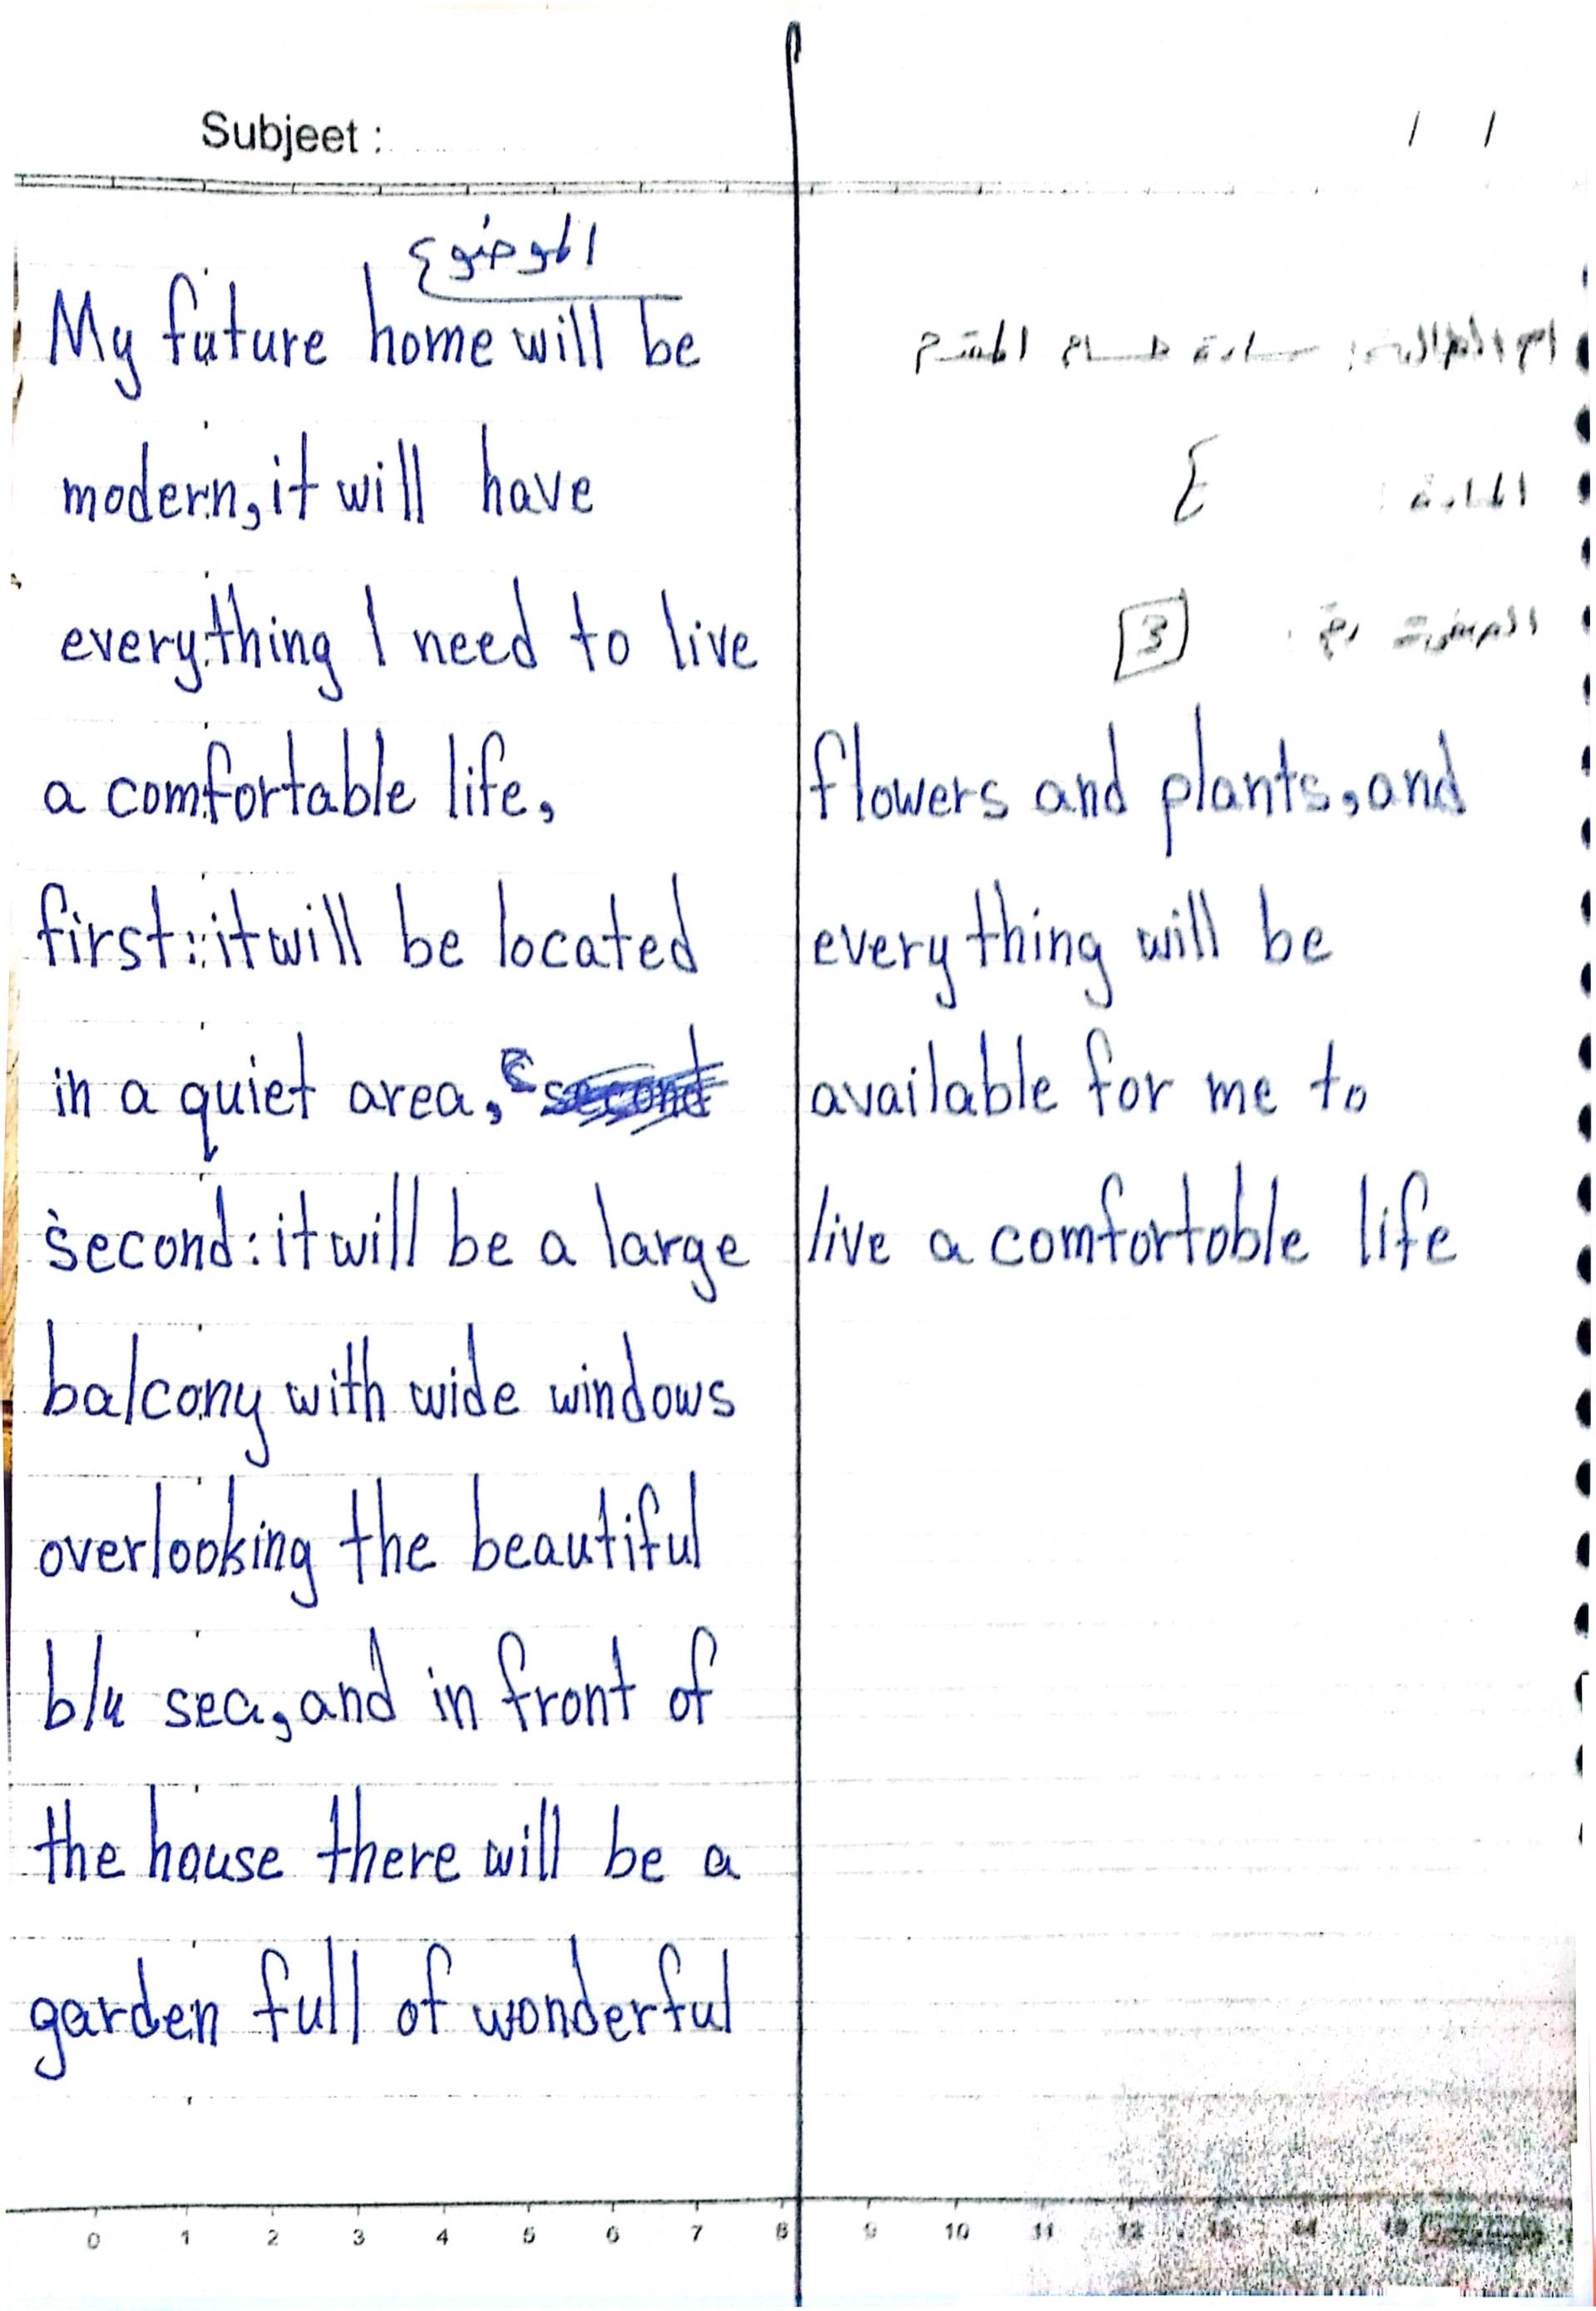 Subjeet :
/ /
الموضوع
My future home will be
modern, it will have
everything I need to live
a comfortable life,
first: it will be located
in a quiet area,
second: it will be a large
balcony with wide windows
overlooking the beautiful
blu sea, and in front of
the house there will be a
garden full of wonderful
اسم الطالبة: سارة حسام
المادة: E
3
flowers and plants, and
everything will be
available for me to
live a comfortoble life
0 1 2 3 4 5 6 7 8 9 10 11 12 13 14